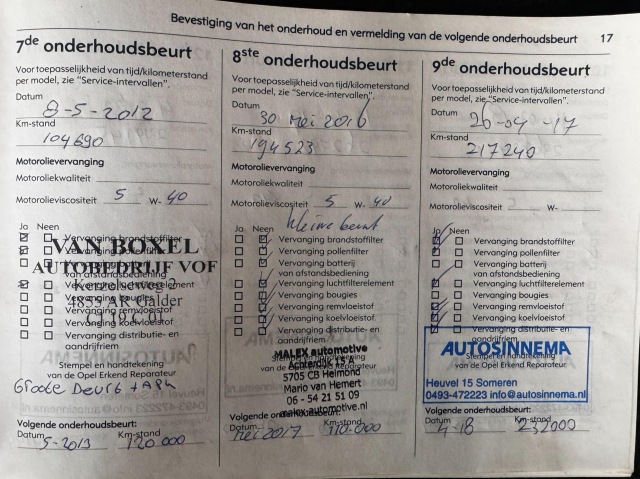 Bevestiging van het onderhoud en vermelding van de volgende onderhoudsbeurt 17
7de onderhoudsbeurt
Voor toepasselijkheid van tijd/kilometerstand
per model, zie "Service-intervallen".
Datum
8-5-2012
Km-stand
104690
Motorolievervanging
Motoroliekwaliteit
Motorolieviscositeit 5 W- 40
Ja Neen
Vervanging brandstoffilter
Vervanging pollenfilter
Vervanging batterij
van afstandsbediening
Vervanging luchtfilterelement
Vervanging bougies
Vervanging remvloeistof
Vervanging koelvloeistof
Vervanging distributie- en
aandrijfriem
VAN BOXEL
AUTOBEDRIJF VOF
4855 AR Galder
Stempel en handtekening
van de Opel Erkend Reparateur
Groote Beurt + APK
Volgende onderhoudsbeurt:
Datum Km-stand
5-2013 120.000
8ste onderhoudsbeurt
Voor toepasselijkheid van tijd/kilometerstand
per model, zie "Service-intervallen".
Datum
30 mei 2016
Km-stand
194523
Motorolievervanging
Motoroliekwaliteit
Motorolieviscositeit 5 W- 40
kleine beurt
Ja Neen
Vervanging brandstoffilter
Vervanging pollenfilter
Vervanging batterij
van afstandsbediening
Vervanging luchtfilterelement
Vervanging bougies
Vervanging remvloeistof
Vervanging koelvloeistof
Vervanging distributie- en
aandrijfriem
MALEX automotive
Achterdijk 15 A
5705 CB Helmond
Mario van Hemert
06 - 54 21 51 09
malex-automotive.nl
Volgende onderhoudsbeurt:
Datum Km-stand
mei 2017
9de onderhoudsbeurt
Voor toepasselijkheid van tijd/kilometerstand
per model, zie "Service-intervallen".
Datum
26-04-17
Km-stand
217240
Motorolievervanging
Motoroliekwaliteit
Motorolieviscositeit W-
Ja Neen
Vervanging brandstoffilter
Vervanging pollenfilter
Vervanging batterij
van afstandsbediening
Vervanging luchtfilterelement
Vervanging bougies
Vervanging remvloeistof
Vervanging koelvloeistof
Vervanging distributie- en
aandrijfriem
AUTOSINNEMA
Stempel en handtekening
van de Opel Erkend Reparateur
Heuvel 15 Someren
0493-472223 info@autosinnema.nl
Volgende onderhoudsbeurt:
Datum Km-stand
4-18 232000